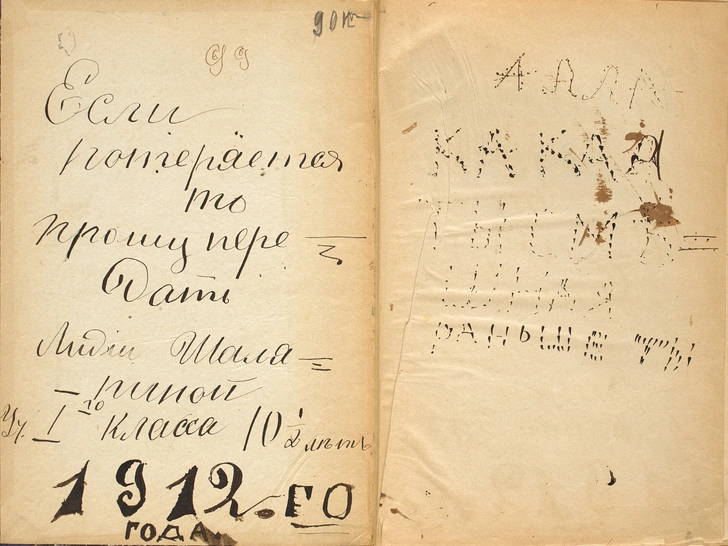 Если
потеряется
то
прошу пере=
дать
Лидии Шаля=
–пиной
Уч. I го класса 10 1/2 лѣтъ
1912.ГО
ГОДА.
АЛЛА
КАКАЯ
ТЫ СМѢ=
ШНАЯ
РАНЬШЕ ТЫ